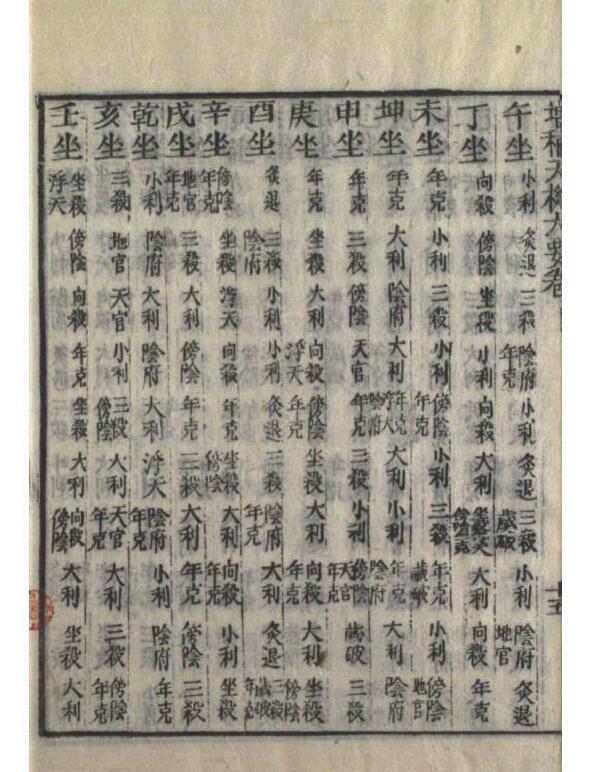 天機大要卷 十五
午坐 小利 灸退 三殺 陰府 年克 小利 灸退 三殺 歲破 小利 陰府 地官 灸退
丁坐 向殺 傍陰 坐殺 小利 向殺 大利 大利 向殺 年克
未坐 年克 小利 三殺 小利 傍陰 年克 小利 三殺 年克 歲破 小利 傍陰 地官
坤坐 年克 大利 陰府 大利 年克 浮天 陰府 大利 小利 年克 陰府 大利 陰府
申坐 年克 三殺 傍陰 天官 年克 三殺 小利 傍陰 天官 歲破 三殺
庚坐 年克 坐殺 大利 向殺 浮天 傍陰 年克 坐殺 大利 向殺 年克 大利 坐殺 傍陰
酉坐 灸退 三殺 陰府 小利 小利 灸退 三殺 陰府 年克 大利 灸退 三殺 歲破 年克
辛坐 傍陰 年克 坐殺 浮天 向殺 年克 坐殺 傍陰 大利 向殺 年克 小利 坐殺
戌坐 地官 年克 三殺 大利 傍陰 年克 三殺 大利 年克 傍陰 三殺
乾坐 小利 陰府 大利 陰府 大利 浮天 陰府 年克 小利 陰府 年克
亥坐 三殺 地官 天官 小利 三殺 傍陰 大利 天官 年克 大利 三殺 傍陰 年克
壬坐 坐殺 浮天 傍陰 向殺 年克 坐殺 大利 向殺 傍陰 大利 坐殺 大利